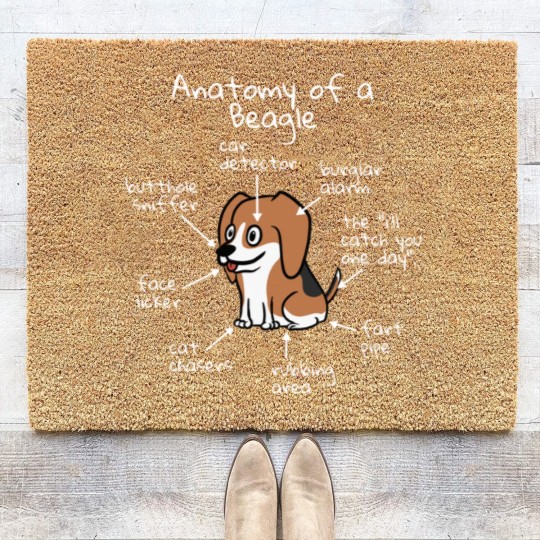 Anatomy of a
Beagle
car
detector
burglar
alarm
butthole
sniffer
the "i'll
catch you
one day"
face
licker
fart
pipe
cat
chasers
rubbing
area